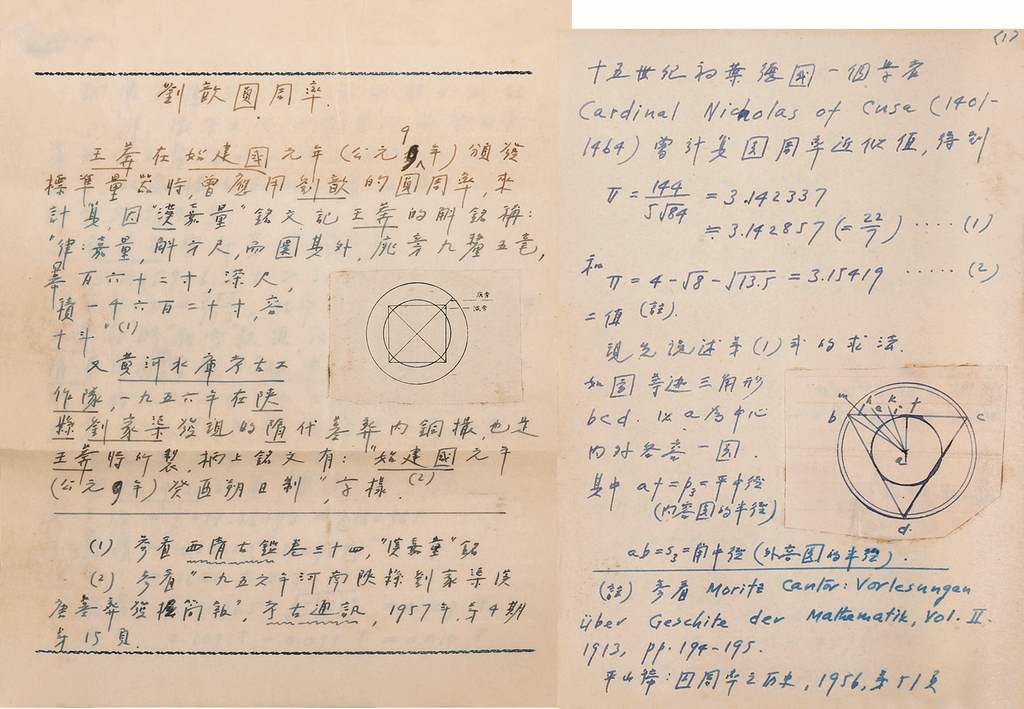 劉歆圓周率.
王莽在始建國元年(公元9年)頒發
標準量器時,曾應用劉歆的圓周率,來
計算,因"漢嘉量"銘文記王莽的斛銘稱:
"律嘉量,斛方尺,而圜其外,庣旁九釐五毫,
冪百六十二寸,深尺,
積一千六百二十寸,容
十斗"(1)
又黃河水庫考古工
作隊,一九五六年在陝
縣劉家渠發現的隋代墓葬內銅撮,也是
王莽時所製,柄上銘文有:"始建國元年
(公元9年)癸酉朔日制",字樣.(2)
(1) 參看西清古鑑卷三十四,"漢嘉量"銘
(2) 參看"一九五六年河南陝縣劉家渠漢
唐墓葬發掘簡報",考古通訊,1957年,第4期
第15頁.
(1)
十五世紀初葉德國一個學者
Cardinal Nicholas of Cusa (1401-
1464) 曾計算圓周率近似值,得到
π = 144/5√84 = 3.142337
≒ 3.142857 (= 22/7) ····· (1)
和
π = 4 - √8 - √13.5 = 3.15419 ····· (2)
二值(註).
現先說述第(1)式的求法.
如圖等邊三角形
bcd. 以a為中心
內外各畫一圓.
m h e k f
b c
a
d
其中 af = p₃ = 平中徑
(內容圓的半徑)
ab = s₃ = 角中徑(外容圓的半徑).
(註) 參看 Moritz Cantor: Vorlesungen
über Geschite der Mathematik, Vol. II.
1913, pp. 194-195.
平山諦:圓周率之历史, 1956, 第51頁